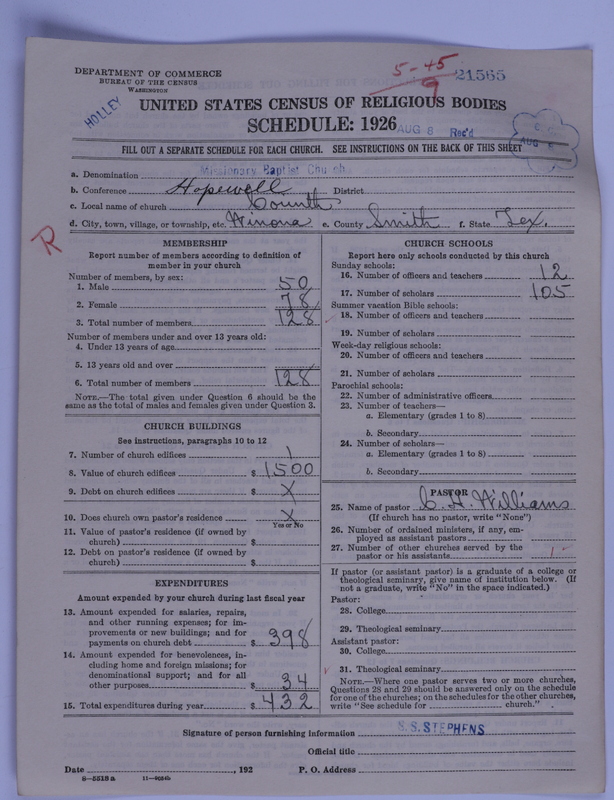 DEPARTMENT OF COMMERCE
BUREAU OF THE CENSUS
WASHINGTON
5-45
9
21565
HOLLEY
UNITED STATES CENSUS OF RELIGIOUS BODIES
SCHEDULE: 1926
AUG 8 Rec'd
FILL OUT A SEPARATE SCHEDULE FOR EACH CHURCH. SEE INSTRUCTIONS ON THE BACK OF THIS SHEET
a. Denomination Missionary Baptist Church
b. Conference Hopewell District
c. Local name of church Corinth
d. City, town, village, or township, etc. Winona e. County Smith f. State Tex.
R
MEMBERSHIP
Report number of members according to definition of
member in your church
Number of members, by sex:
1. Male 50
2. Female 78
3. Total number of members 128
Number of members under and over 13 years old:
4. Under 13 years of age
5. 13 years old and over
6. Total number of members 128
NOTE.—The total given under Question 6 should be the
same as the total of males and females given under Question 3.
CHURCH BUILDINGS
See instructions, paragraphs 10 to 12
7. Number of church edifices 1
8. Value of church edifices $ 1500
9. Debt on church edifices $ X
10. Does church own pastor's residence X
Yes or No
11. Value of pastor's residence (if owned by
church) $
12. Debt on pastor's residence (if owned by
church) $
EXPENDITURES
Amount expended by your church during last fiscal year
13. Amount expended for salaries, repairs,
and other running expenses; for im-
provements or new buildings; and for
payments on church debt $ 398
14. Amount expended for benevolences, in-
cluding home and foreign missions; for
denominational support; and for all
other purposes $ 34
15. Total expenditures during year $ 432
CHURCH SCHOOLS
Report here only schools conducted by this church
Sunday schools:
16. Number of officers and teachers 12
17. Number of scholars 105
Summer vacation Bible schools:
18. Number of officers and teachers
19. Number of scholars
Week-day religious schools:
20. Number of officers and teachers
21. Number of scholars
Parochial schools:
22. Number of administrative officers
23. Number of teachers—
a. Elementary (grades 1 to 8)
b. Secondary
24. Number of scholars—
a. Elementary (grades 1 to 8)
b. Secondary
PASTOR
25. Name of pastor C. H. Williams
(If church has no pastor, write "None")
26. Number of ordained ministers, if any, em-
ployed as assistant pastors
27. Number of other churches served by the
pastor or his assistants 1
If pastor (or assistant pastor) is a graduate of a college or
theological seminary, give name of institution below. (If
not a graduate, write "No" in the space indicated.)
Pastor:
28. College
29. Theological seminary
Assistant pastor:
30. College
31. Theological seminary
NOTE.—Where one pastor serves two or more churches,
Questions 28 and 29 should be answered only on the schedule
for one of the churches; on the schedules for the other churches,
write "See schedule for church."
Signature of person furnishing information S.S. STEPHENS
Official title
Date , 192 P. O. Address
8-5518a 11-9024b